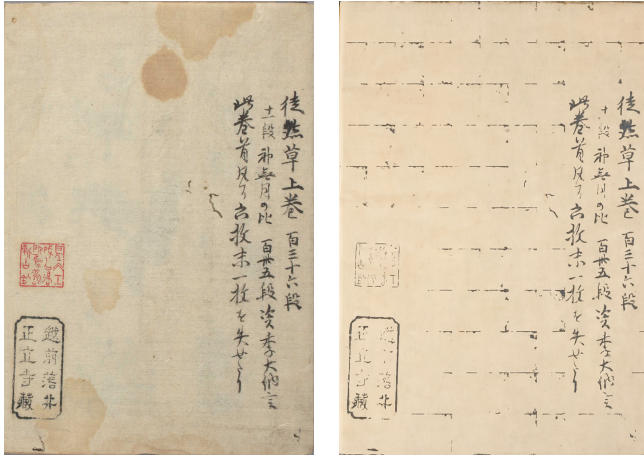 徒然草上巻 百三十六段
十一段 神無月の比 百卅五段 資季大納言
此巻首尾了六枚末一枚を失せり
越前蒲井
正立寺蔵
徒然草上巻 百三十六段
十一段 神無月の比 百卅五段 資季大納言
此巻首尾了六枚末一枚を失せり
越前蒲井
正立寺蔵